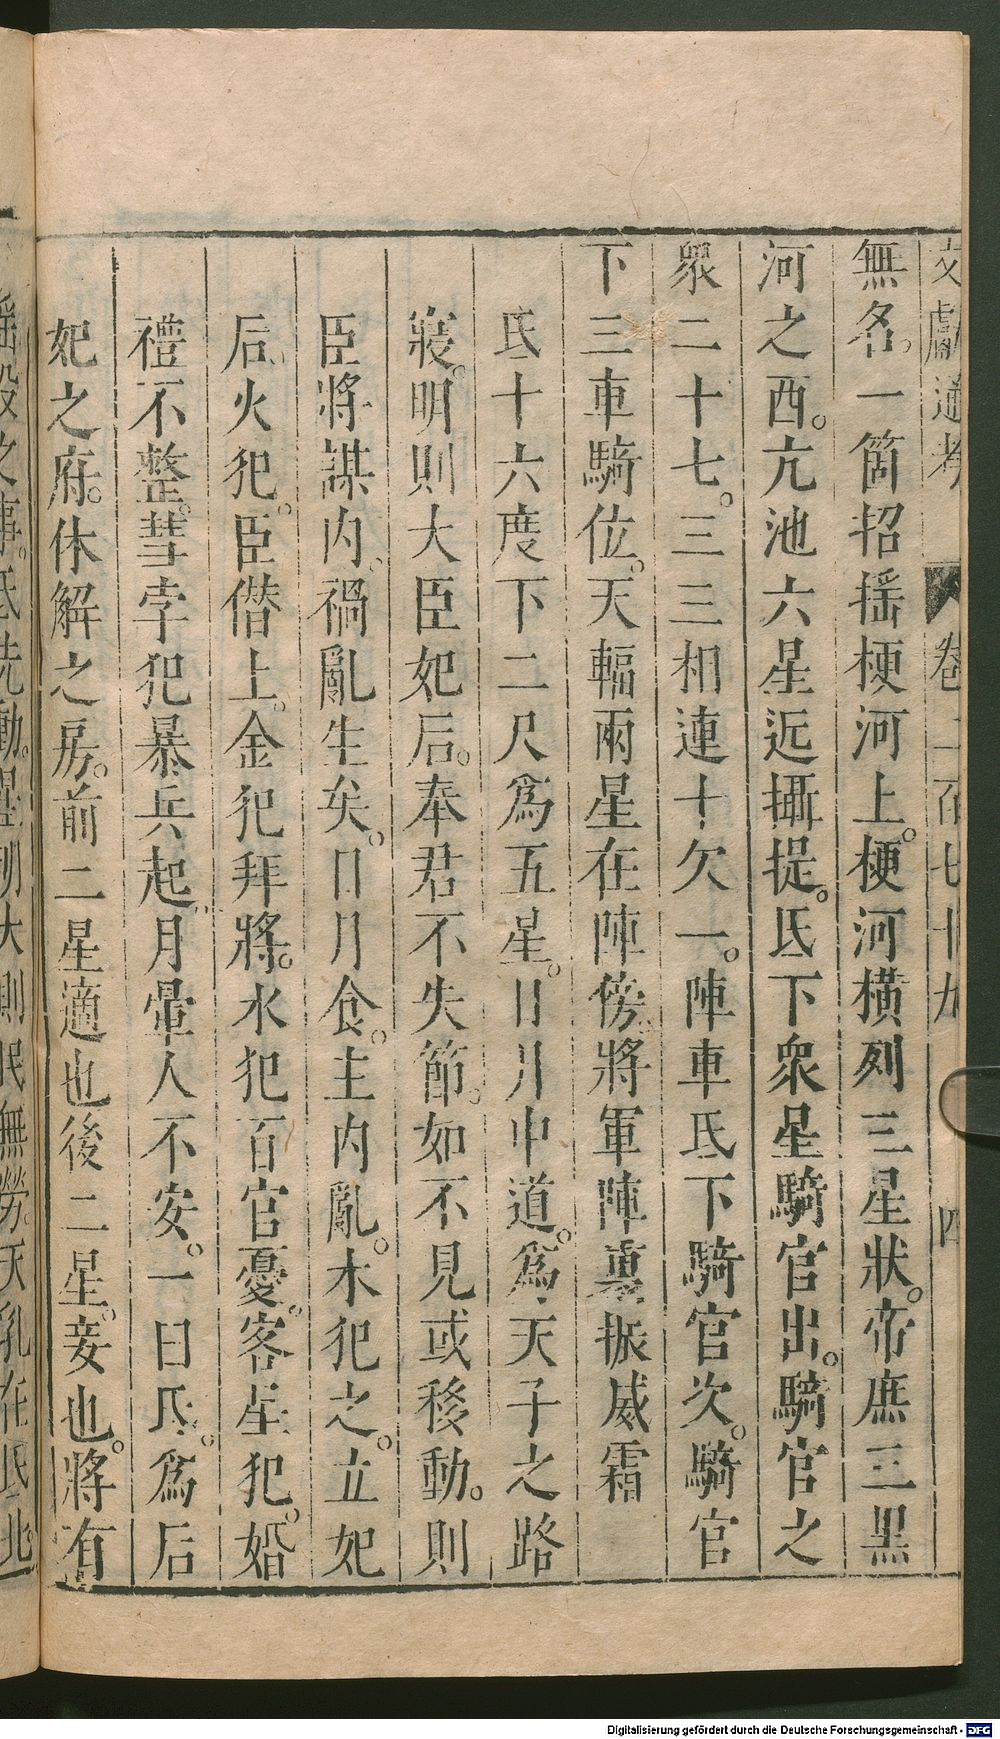 文獻通考 卷二百七十九 四
無名。一箇招搖梗河上。梗河橫列三星狀。帝席三黑
河之西。亢池六星近攝提。氐下衆星騎官出。騎官之
衆二十七。三三相連十欠一。陣車氐下騎官次。騎官
下三車騎位。天輻兩星在陣傍。將軍陣裏振威霜
氐十六度下二尺爲五星。日月中道。爲天子之路
寢。明則大臣妃后。奉君不失節。如不見或移動。則
臣將謀内。禍亂生矣。日月食。主内亂。木犯之。立妃
后。火犯。臣僭上。金犯拜將。水犯百官憂。客星犯。婚
禮不整。彗孛犯暴兵起。月暈人不安。一曰氐。爲后
妃之府。休解之房。前二星適也後二星。妾也。將有
徭役之事。氐先動。星明大則民無勞。天乳在氐北
Digitalisierung gefördert durch die Deutsche Forschungsgemeinschaft - DFG